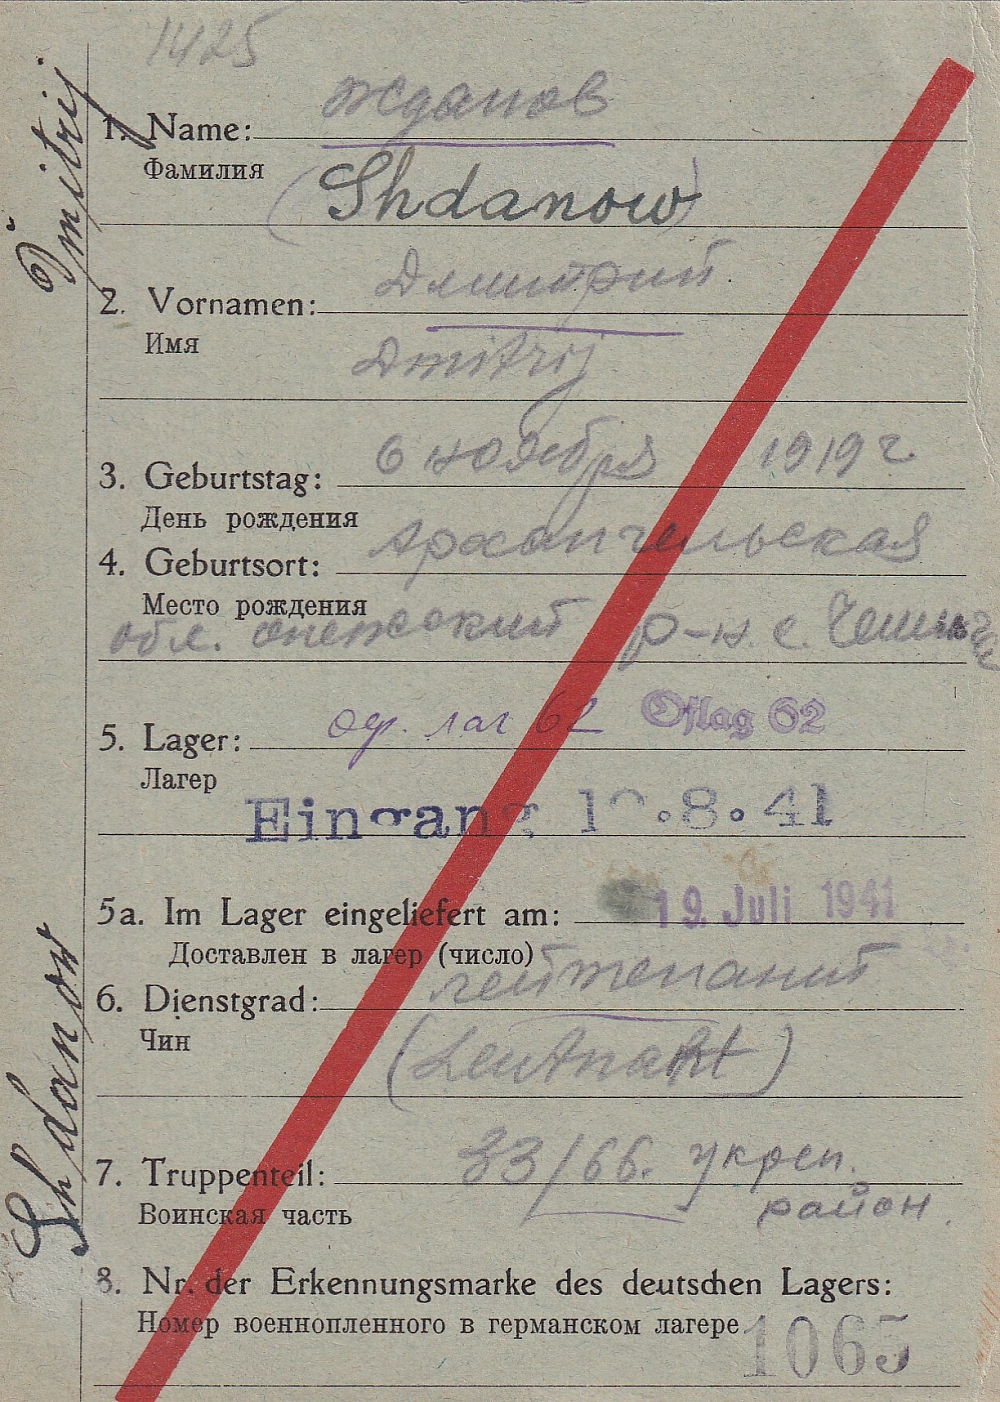 1425
Жданов
1. Name:
Фамилия
(Shdanow)
Дмитрий
2. Vornamen:
Имя
Dmitrij
6 ноября 1919 г.
3. Geburtstag:
День рождения
Архангельская
4. Geburtsort:
Место рождения
обл. онежский р-н. с.
оф. лаг 62 Oflag 62
5. Lager:
Лагерь
Eingang .8.41
19. Juli 1941
5a. Im Lager eingeliefert am:
Доставлен в лагер (число)
лейтенант
6. Dienstgrad:
Чин
(Leutnant)
83/66. укреп.
7. Truppenteil:
район.
Воинская часть
8. Nr. der Erkennungsmarke des deutschen Lagers:
Номер военнопленного в германском лагере
1065
Dmitrij
Shdanow